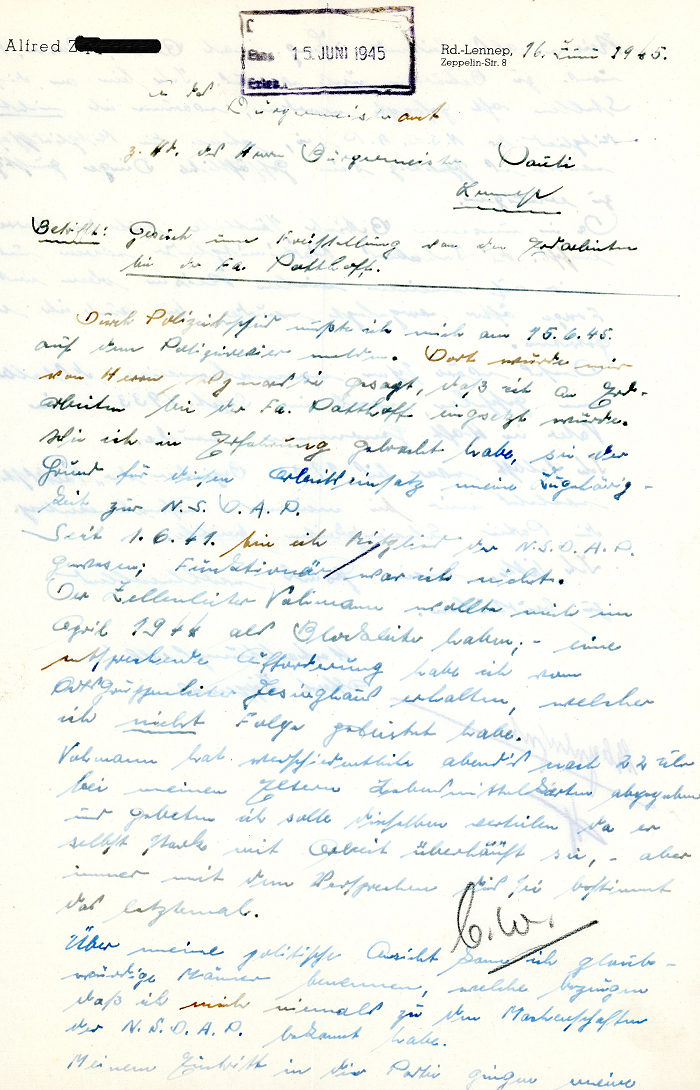 Alfred Z
15. JUNI 1945
Rd.-Lennep, 16. Juni 1945.
Zeppelin-Str. 8
An das
Bürgermeisteramt
z. Hd. des Herrn Bürgermeister
Lennep
Betrifft: Gesuch um Freistellung von den Erdarbeiten
bei der Fa. Patthoff.
Durch Polizeibescheid mußte ich mich am 15.6.45.
auf dem Polizeirevier melden. Dort wurde mir
von Herrn gesagt, daß ich an Erd-
arbeiten bei der Fa. Patthoff eingesetzt würde.
Wie ich in Erfahrung gebracht habe, sei der
Grund für diesen Arbeitseinsatz meine Zugehörig-
keit zur N.S.D.A.P.
Seit 1.6.41. bin ich Mitglied der N.S.D.A.P.
gewesen; Funktionär war ich nicht.
Der Zellenleiter Vohmann wollte mich im
April 1944 als Blockleiter haben; - eine
entsprechende Aufforderung habe ich vom
Ortsgruppenleiter erhalten, welcher
ich nicht Folge geleistet habe.
Vohmann hat verschiedentlich abend's nach 22 Uhr
bei meinen Eltern Lebensmittelkarten abgegeben
und gebeten ich solle dieselben verteilen da er
selbst stark mit Arbeit überhäuft sei, - aber
immer mit dem Versprechen dies sei bestimmt
das letztemal.
Über meine politische Ansicht kann ich glaub-
würdige Männer benennen, welche bezeugen
daß ich mich niemals zu den Machenschaften
der N.S.D.A.P. bekannt habe.
Meinem Eintritt in die Partei gingen meine